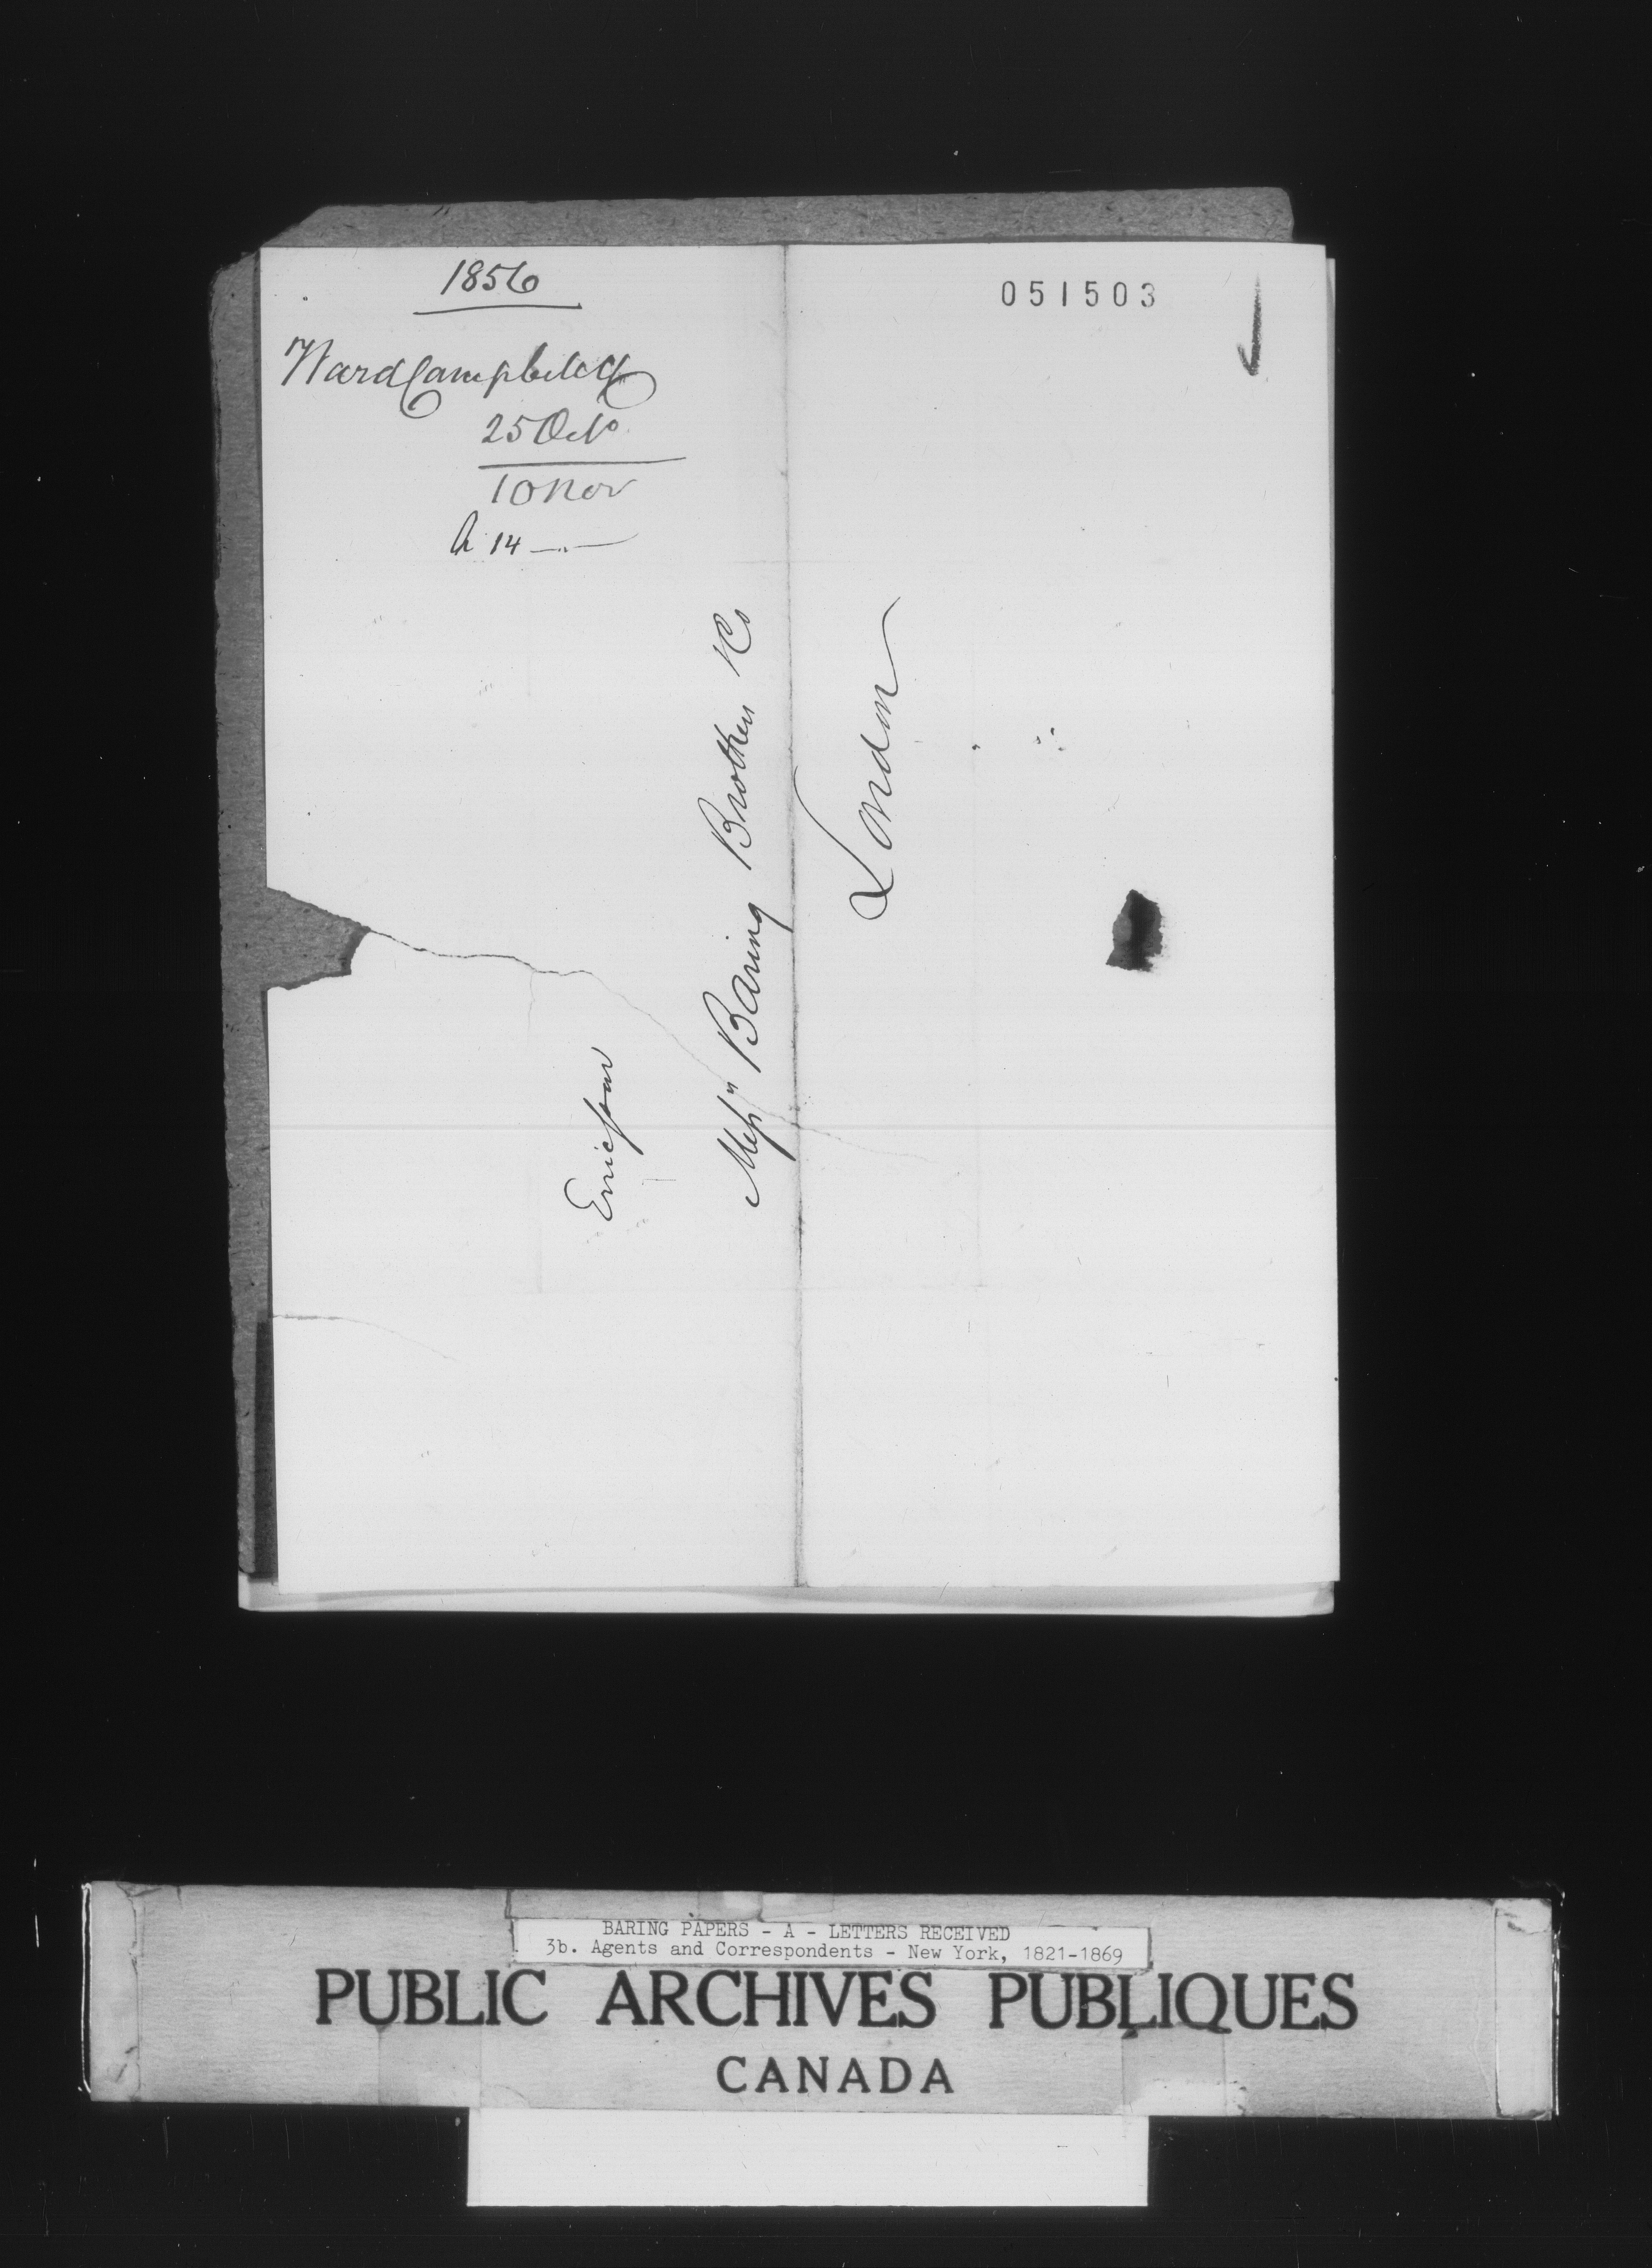 1856
051503
Ward Campbell & Co
25 Octo
10 Nov
A 14
Ericsson
Messrs Baring Brothers & Co
London
BARING PAPERS - A - LETTERS RECEIVED
3b. Agents and Correspondents - New York, 1821-1869
PUBLIC ARCHIVES PUBLIQUES
CANADA